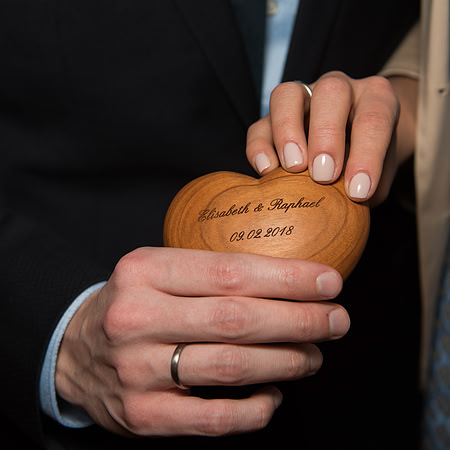 Elisabeth & Raphael
09.02.2018